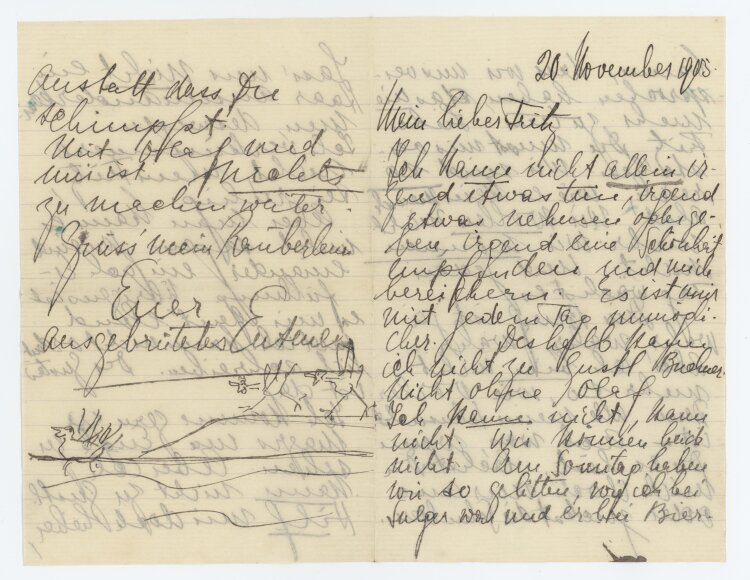 20 November 1905.
Mein lieber Fritz
Ich kann nicht allein ir-
gend etwas tun, irgend
etwas nehmen oder ge-
ben, irgend eine Schönheit
empfinden und mich
bereichern. Es ist mir
mit jedem Tag unmögli-
cher. Deshalb kann
ich nicht zu Gustl
Nicht ohne Olaf.
Ich kann nicht, kann
nicht. Wir können beid
nicht. Am Sonntag haben
wir so gelitten, wie ich bei
war und er bei Bier-
anstatt dass Du
schimpfst.
Mit Olaf und
mir ist nichts
zu machen weiter.
Grüss' mein Räuberlein
Euer
ausgebrütetes Entenei